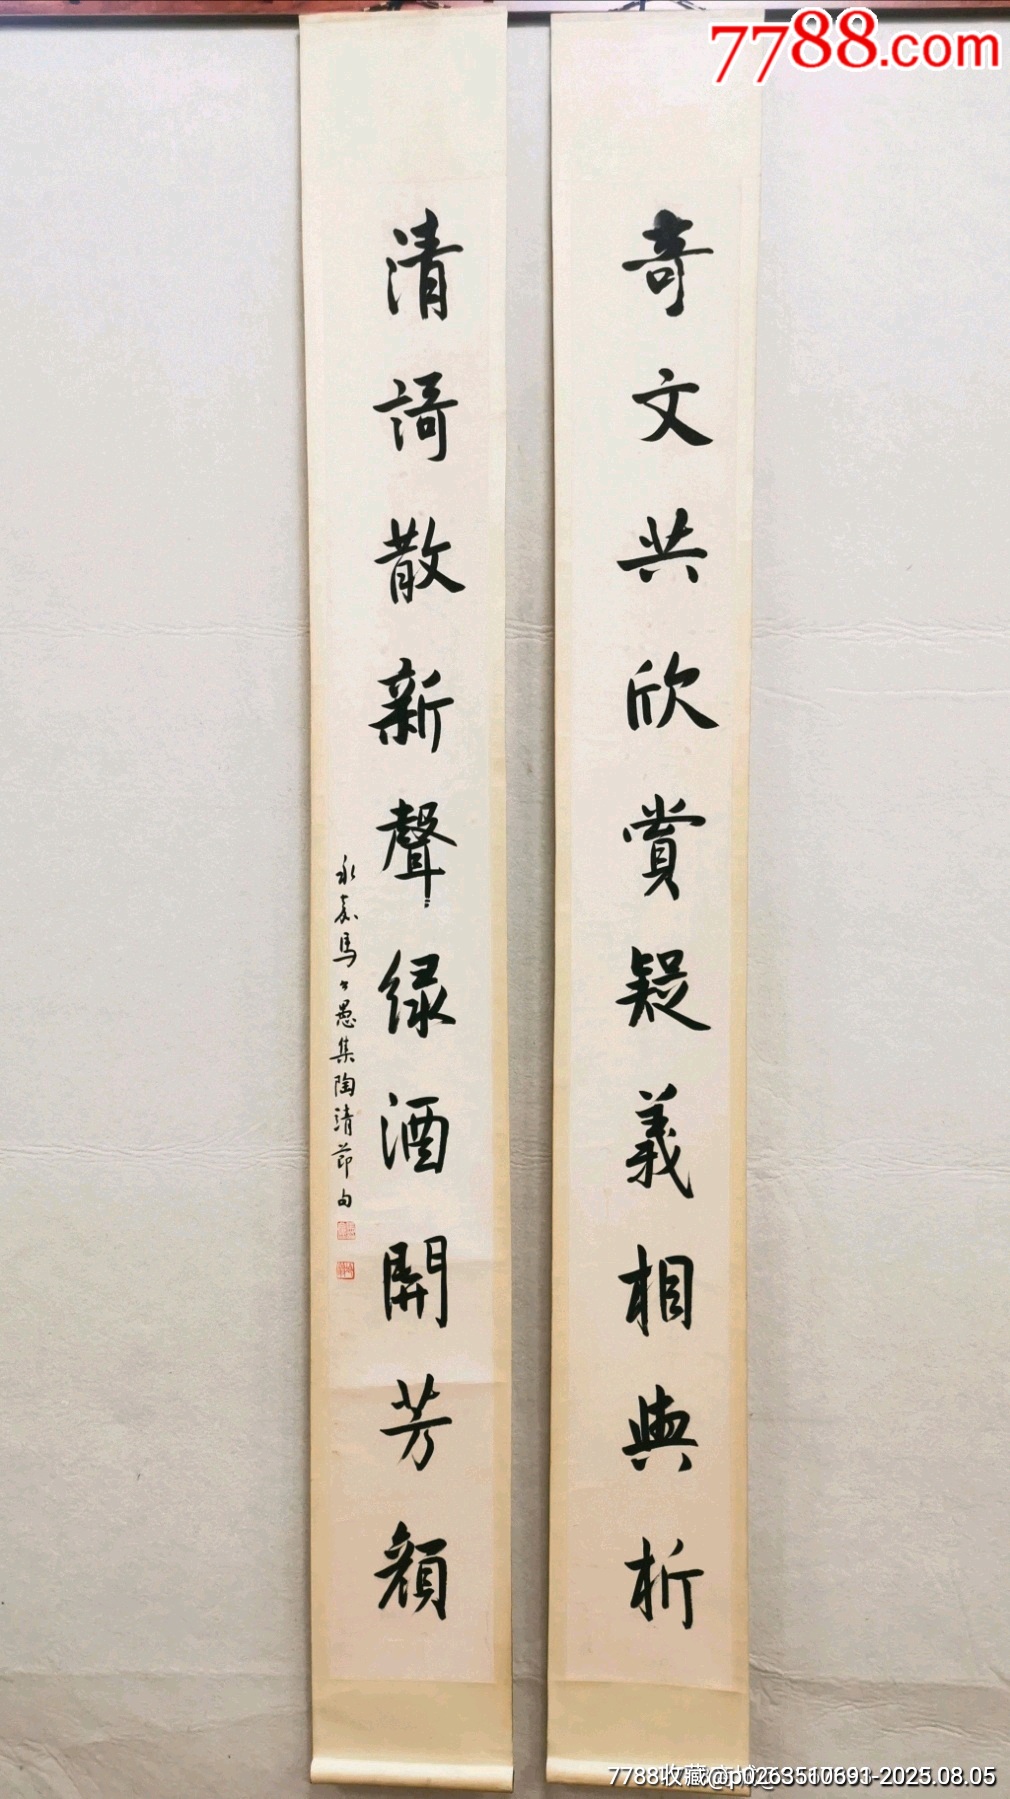 奇文共欣賞疑義相與析
清謌散新聲緑酒開芳顏
永嘉馬公愚集陶靖節句
7788.com
7788收藏@p0263510691-2025.08.05